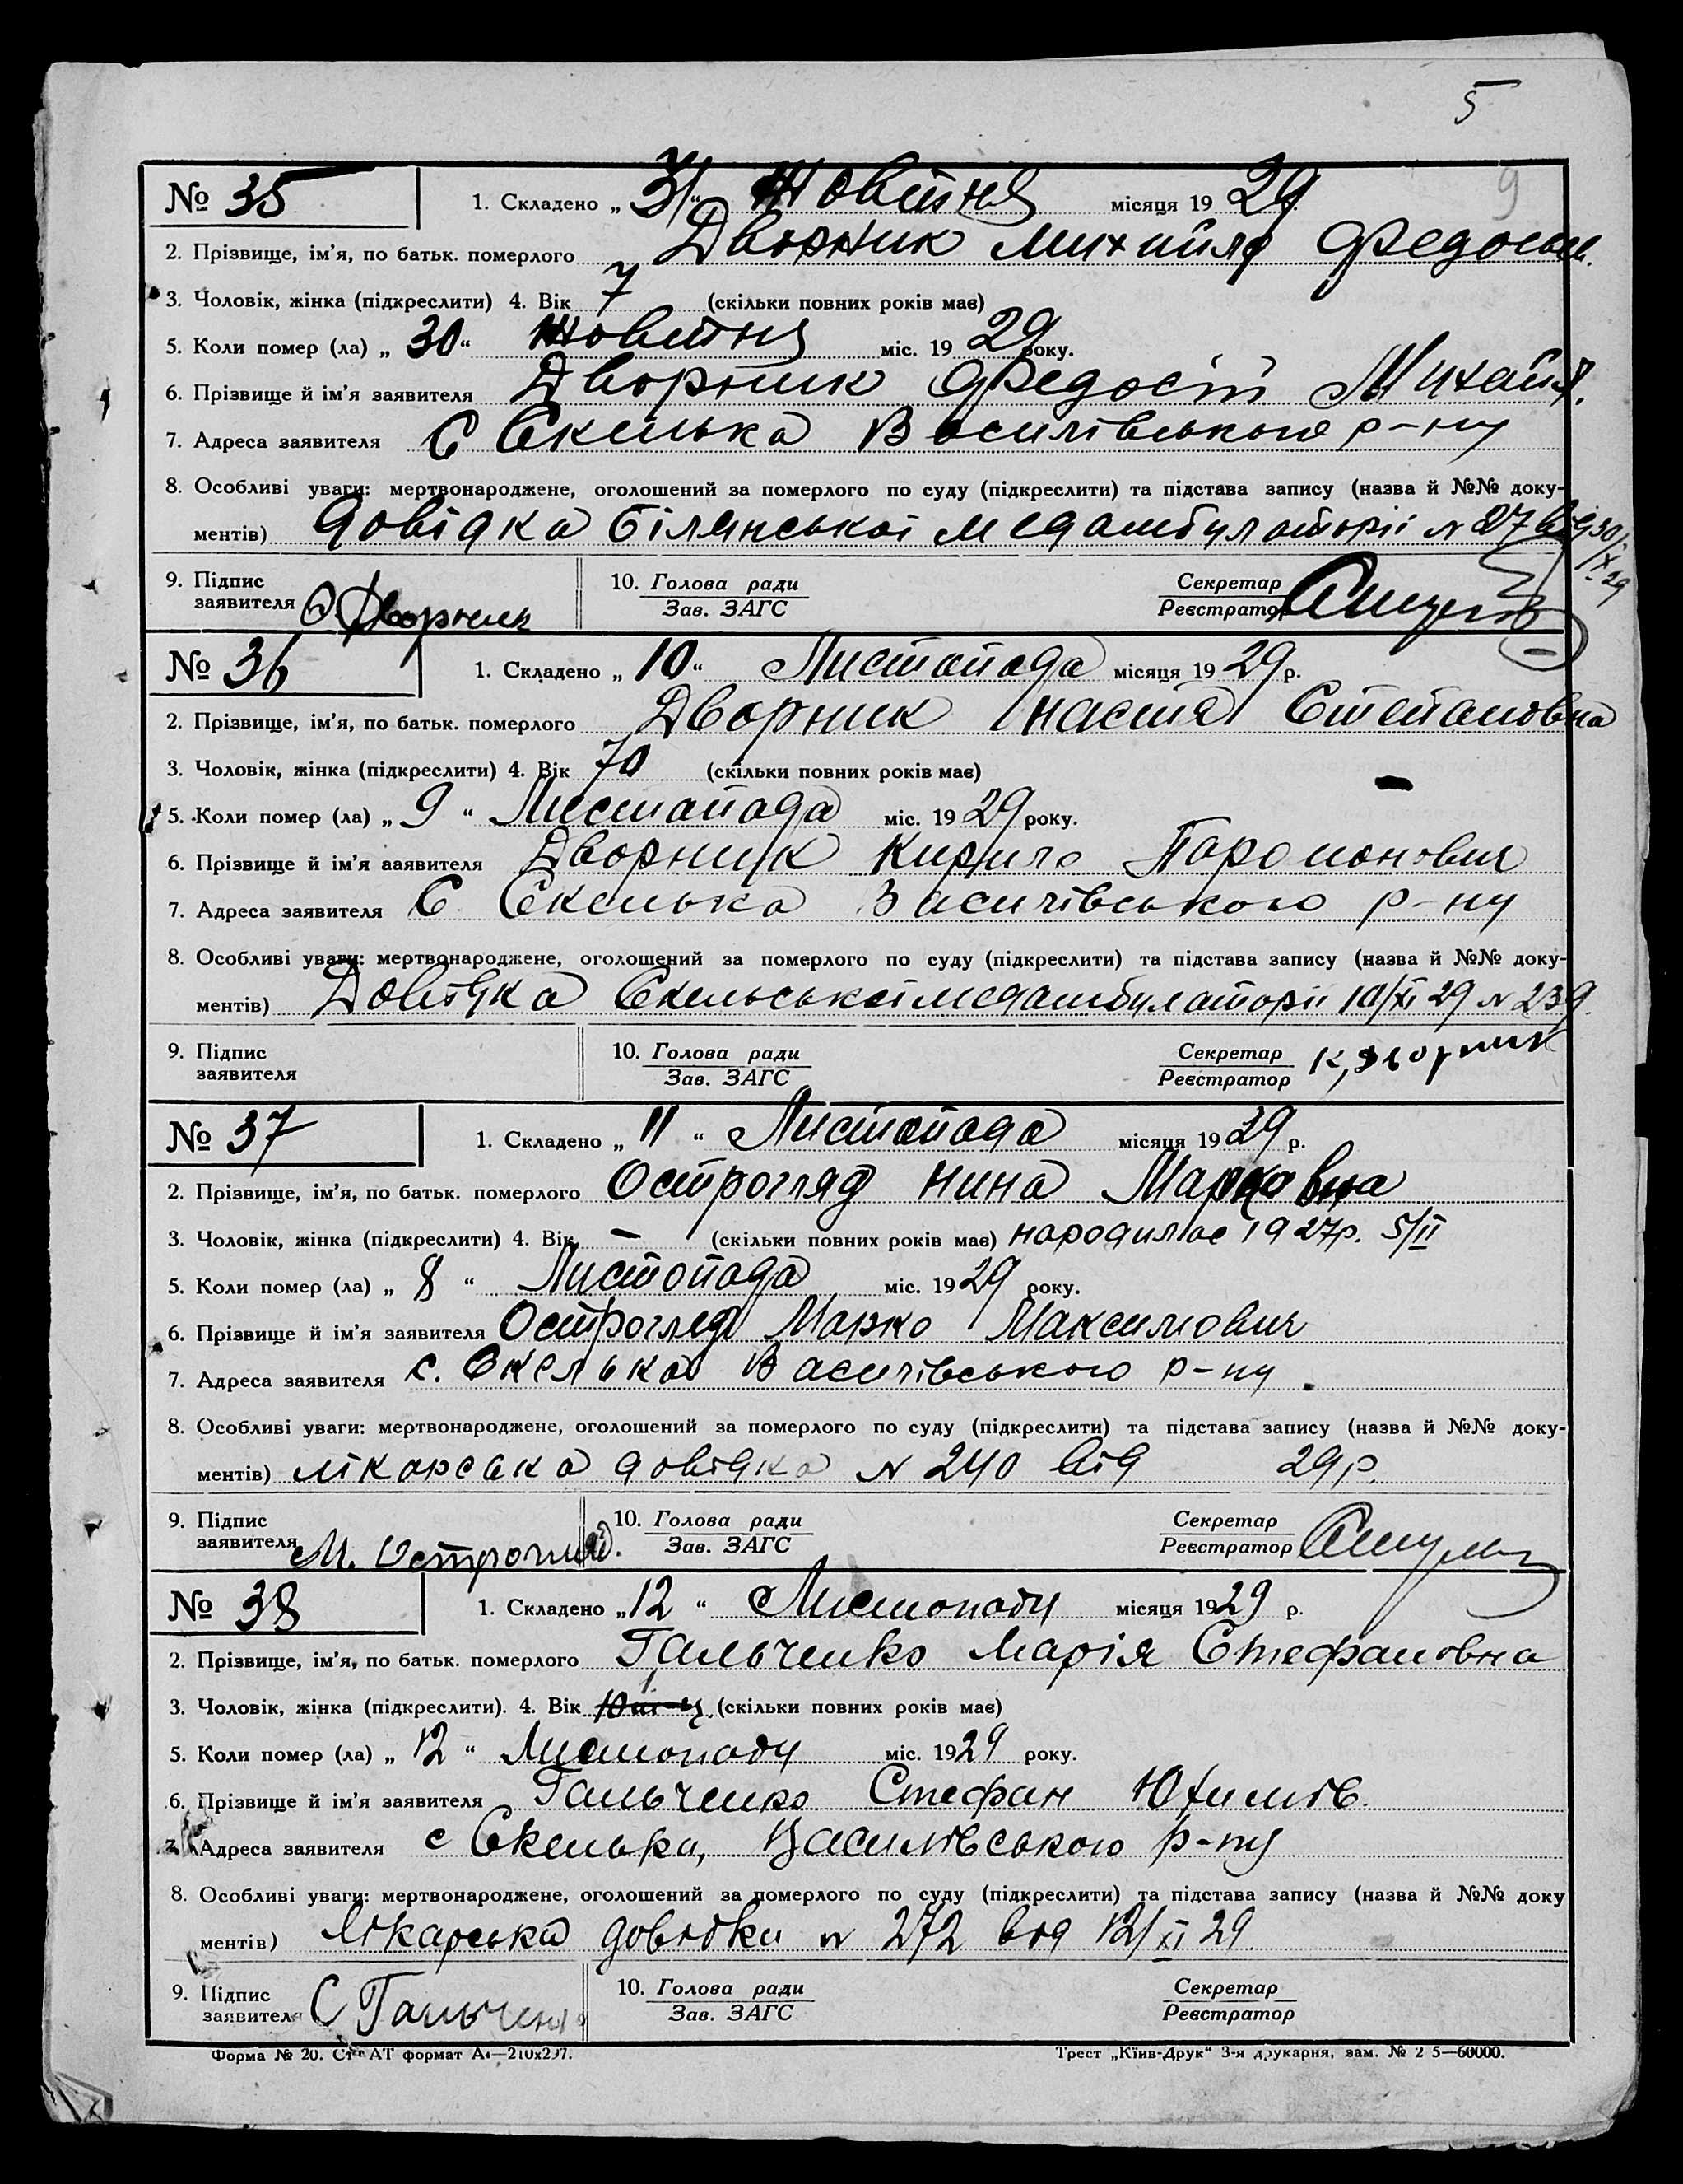 5
9
№ 35 1. Складено „ 31 “ Жовтня місяця 19 29 р.
2. Прізвище, ім’я, по батьк. померлого Дворник Михайло Федосьи.
3. Чоловік, жінка (підкреслити) 4. Вік 7 (скільки повних років має)
5. Коли помер (ла) „ 30 “ Жовтня міс. 19 29 року.
6. Прізвище й ім’я заявителя Дворник Федосій Михайл.
7. Адреса заявителя С Скелька Василівського р-ну
8. Особливі уваги: мертвонароджене, оголошений за померлого по суду (підкреслити) та підстава запису (назва й №№ доку-
ментів) Довідка Білянської медамбулаторії N 27 від 30/X 29
9. Підпис заявителя Ф. Дворник 10. Голова ради Секретар
Зав. ЗАГС Реєстратор
№ 36 1. Складено „ 10 “ Листопада місяця 19 29 р.
2. Прізвище, ім’я, по батьк. померлого Дворник Настя Степановна
3. Чоловік, жінка (підкреслити) 4. Вік 70 (скільки повних років має)
5. Коли помер (ла) „ 9 “ Листопада міс. 19 29 року.
6. Прізвище й ім’я ааявителя Дворник Кирило Парамонович
7. Адреса заявителя С Скелька Василівського р-ну
8. Особливі уваги: мертвонароджене, оголошений за померлого по суду (підкреслити) та підстава запису (назва й №№ доку-
ментів) Довідка Скельської медамбулаторії 10/XI 29 N 239.
9. Підпис заявителя 10. Голова ради Секретар К, Дворник
Зав. ЗАГС Реєстратор
№ 37 1. Складено „ 11 “ Листопада місяця 19 29 р.
2. Прізвище, ім’я, по батьк. померлого Острогляд Нина Марковна
3. Чоловік, жінка (підкреслити) 4. Вік – (скільки повних років має) народилас 1927р. 5/II
5. Коли помер (ла) „ 8 “ Листопада міс. 19 29 року.
6. Прізвище й ім’я заявителя Остогляд Марко Максимович
7. Адреса заявителя с. Скелька Василівського р-ну.
8. Особливі уваги: мертвонароджене, оголошений за померлого по суду (підкреслити) та підстава запису (назва й №№ доку-
ментів) лікарська довідка N 240 від 29р.
9. Підпис заявителя М. Остогляд. 10. Голова ради Секретар
Зав. ЗАГС Реєстратор
№ 38 1. Складено „ 12 “ Листопаду місяця 19 29 р.
2. Прізвище, ім’я, по батьк. померлого Гальченко Марія Стефановна
3. Чоловік, жінка (підкреслити). 4. Вік (скільки повних років має)
5. Коли помер (ла) „ 12 “ Листопаду міс. 19 29 року.
6. Прізвище й ім’я заявителя Гальченко Стефан Юхимів.
7. Адреса заявителя с Скелька, Василівського р-ну
8. Особливі уваги: мертвонароджене, оголошений за померлого по суду (підкреслити) та підстава запису (назва й №№ доку
ментів) Лікарська довідки N 272 від 12/XI 29.
9. Підпис заявителя С Гальченко 10. Голова ради Секретар
Зав. ЗАГС Реєстратор
Форма № 20. Ст. АТ формат А4—210х297. Трест „Київ-Друк“ 3-я друкарня, зам. № 2 5—60000.